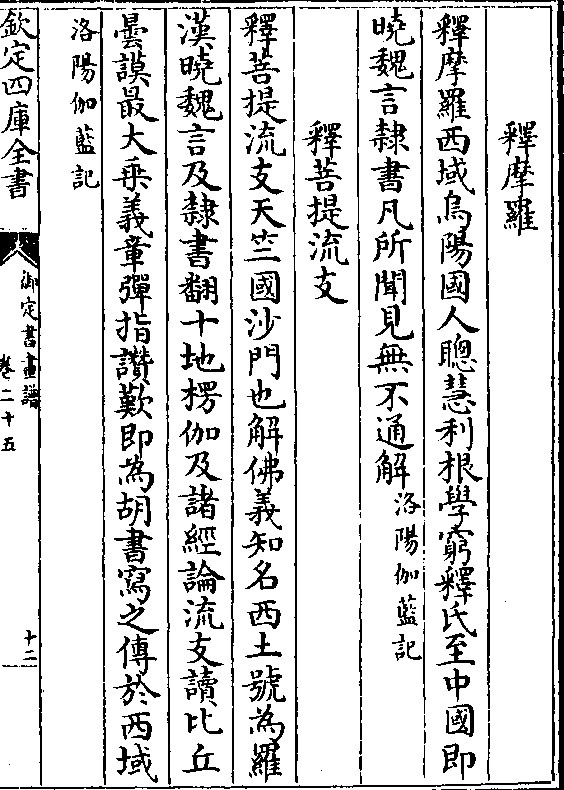 釋摩羅
釋摩羅西域烏陽國人聰慧利根學窮釋氏至中國即
曉魏言隷書凡所聞見無不通解洛陽伽藍記
釋菩提流支
釋菩提流支天竺國沙門也解佛義知名西土號為羅
漢曉魏言及隷書翻十地楞伽及諸經論流支讀比丘
曇謨最大乗義章彈指讚歎即為胡書寫之傳於西域
洛陽伽藍記
欽定四庫全書
御定書畫譜
卷二十五
十二